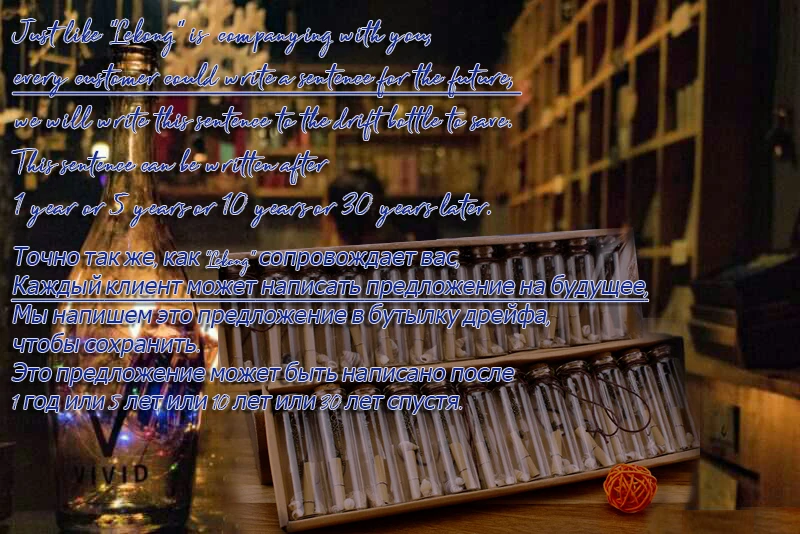 Just like "Lekong" is companying with you,
every customer could write a sentence for the future,
we will write this sentence to the drift bottle to save.
This sentence can be written after
1 year or 5 years or 10 years or 30 years later.
Точно так же, как "Lekong" сопровождает вас,
Каждый клиент может написать предложение на будущее,
Мы напишем это предложение в бутылку дрейфа,
чтобы сохранить.
Это предложение может быть написано после
1 год или 5 лет или 10 лет или 30 лет спустя.
VIVID